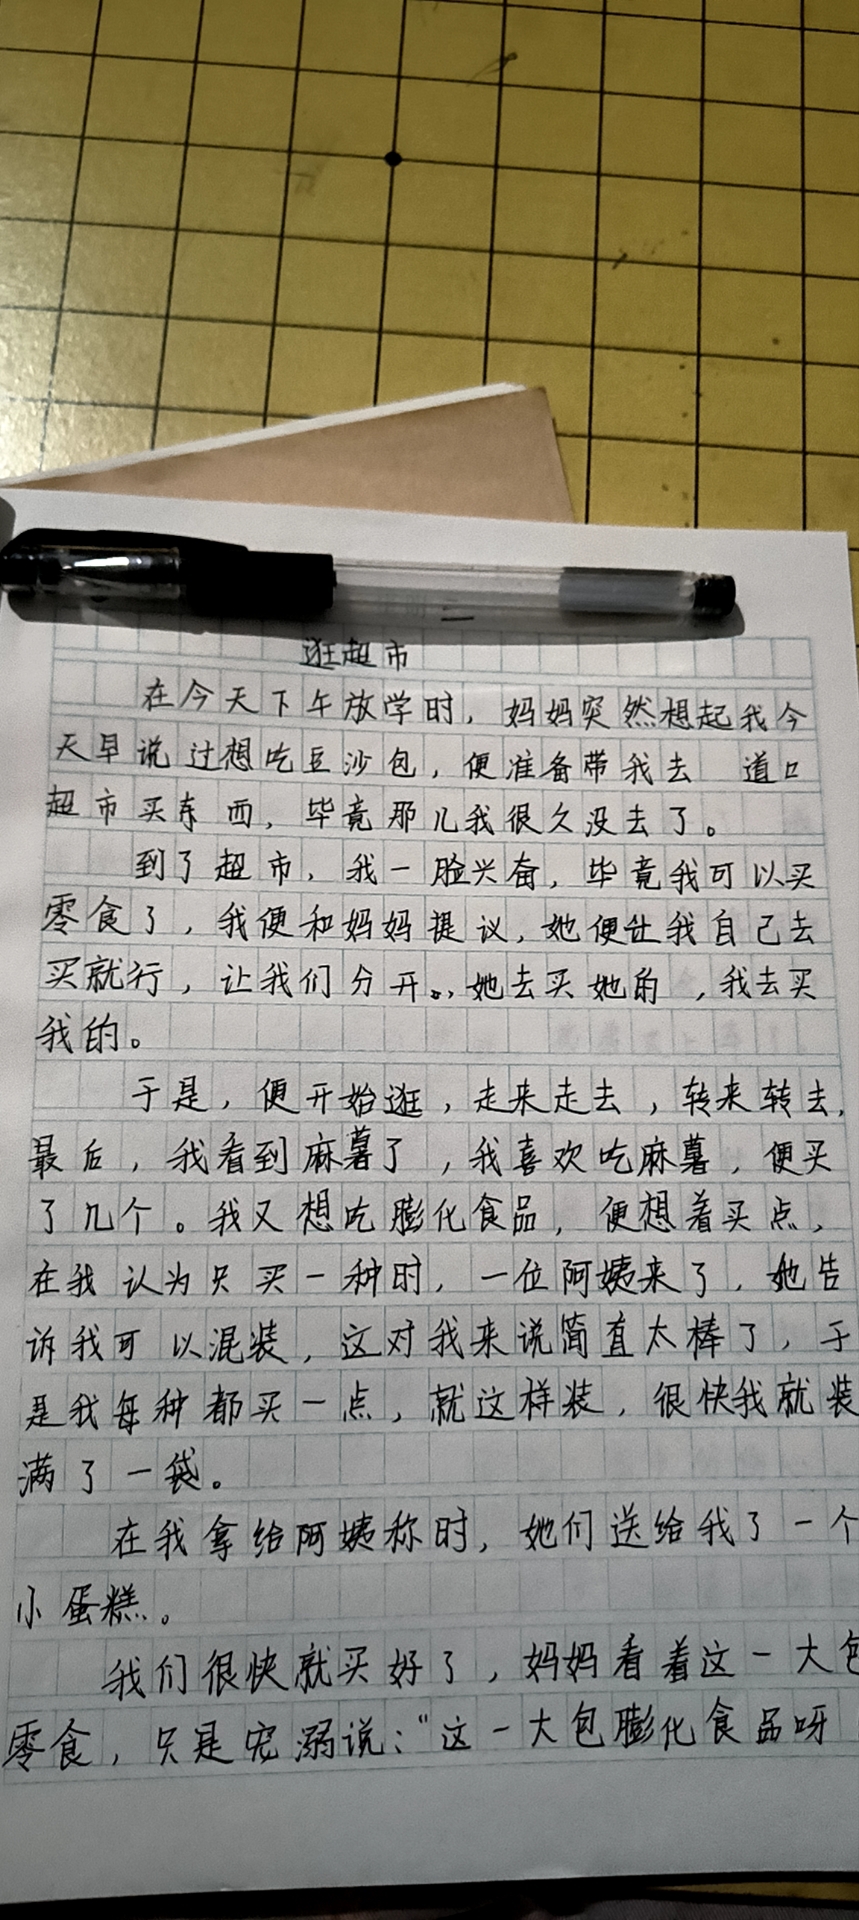 逛超市
在今天下午放学时，妈妈突然想起我今
天早说过想吃豆沙包，便准备带我去 道口
超市买东西，毕竟那儿我很久没去了。
到了超市，我一脸兴奋，毕竟我可以买
零食了，我便和妈妈提议，她便让我自己去
买就行，让我们分开。，她去买她的，我去买
我的。
于是，便开始逛，走来走去，转来转去，
最后，我看到麻薯了，我喜欢吃麻薯，便买
了几个。我又想吃膨化食品，便想着买点，
在我认为只买一种时，一位阿姨来了，她告
诉我可以混装，这对我来说简直太棒了，于
是我每种都买一点，就这样装，很快我就装
满了一袋。
在我拿给阿姨称时，她们送给我了一个
小蛋糕。
我们很快就买好了，妈妈看着这一大包
零食，只是宠溺说：“这一大包膨化食品呀